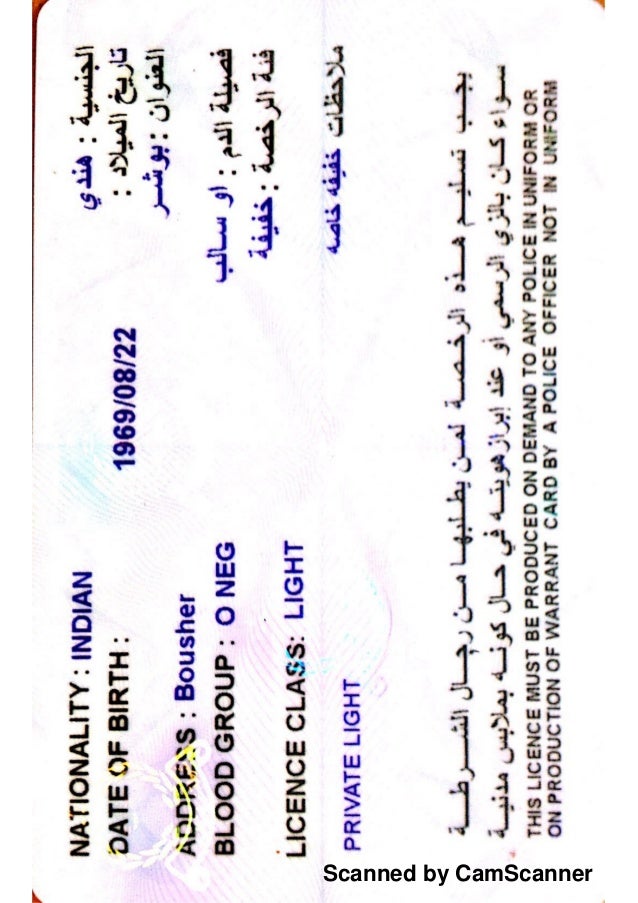 NATIONALITY : INDIAN الجنسية : هندي
DATE OF BIRTH : 1969/08/22 تاريخ الميلاد :
ADDRESS : Bousher العنوان : بوشر
BLOOD GROUP : O NEG فصيلة الدم : او سالب
LICENCE CLASS: LIGHT فئة الرخصة : خفيفة
PRIVATE LIGHT ملاحظات خفيفه خاصه
يجب تسليم هذه الرخصة لمن يطلبها من رجال الشرطة
سواء كان بالزي الرسمي أو عند إبراز هويته في حال كونه بملابس مدنية
THIS LICENCE MUST BE PRODUCED ON DEMAND TO ANY POLICE IN UNIFORM OR
ON PRODUCTION OF WARRANT CARD BY A POLICE OFFICER NOT IN UNIFORM
Scanned by CamScanner